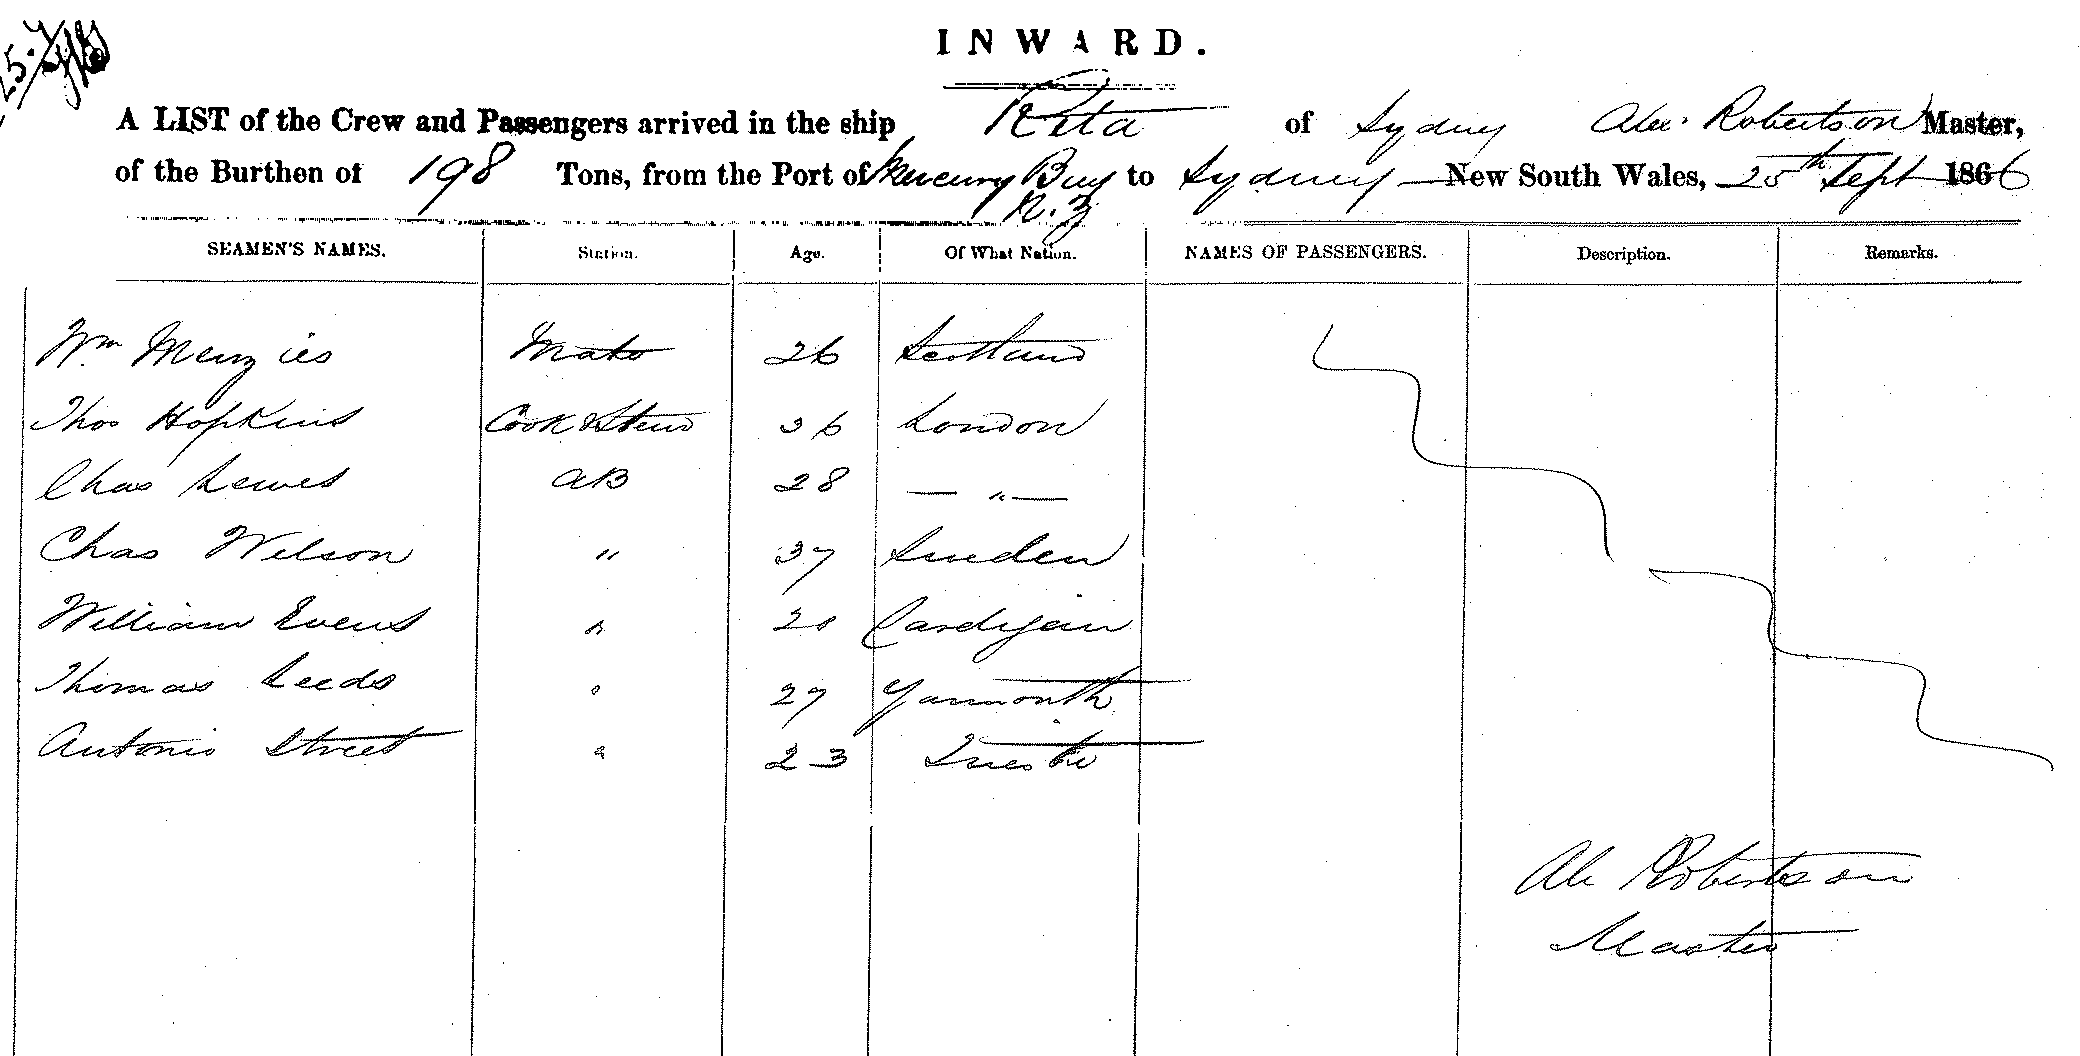 INWARD.
A LIST of the Crew and Passengers arrived in the ship Rita of Sydney Alex. Robertson Master,
of the Burthen of 198 Tons, from the Port of Mercury Bay to Sydney New South Wales, 25th Sept 1866
N.Z
SEAMEN'S NAMES. Station. Age. Of What Nation. NAMES OF PASSENGERS. Description. Remarks.
Wm Menzies Mate 26 Scotland
Thos Hopkins Cook & Stewd 36 London
Chas Lewes AB 28 — " —
Chas Wilson " 37 Sweden
William Evens " 20 Cardigan
Thomas Leeds " 27 Yarmouth
Antonio Street " 23 Trieste
Alex Robertson
Master